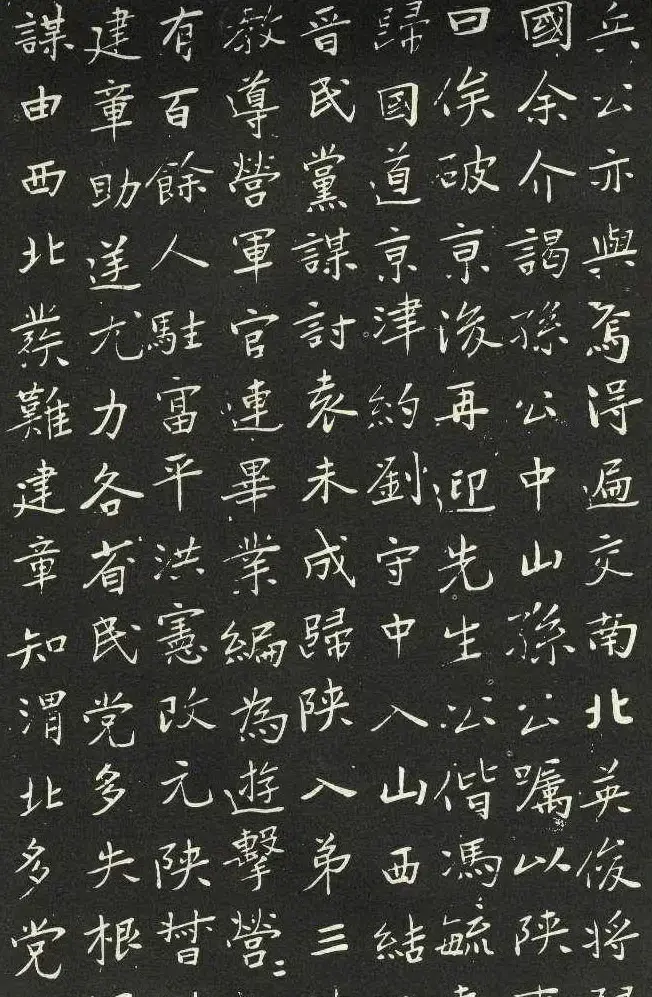 兵公亦與焉淂遍交南北英俊將
國余介謁孫公中山孫公囑以陝
曰俟破亰後再迎先生公偕馮毓
歸國道亰津約劉守中入山西結
晋民黨謀討袁未成歸陝入弟三
教導營軍官連畢業編為遊擊營〻
有百餘人駐富平洪憲改元陝督
建章助逆尤力各省民党多失根
謀由西北發難建章知渭北多党